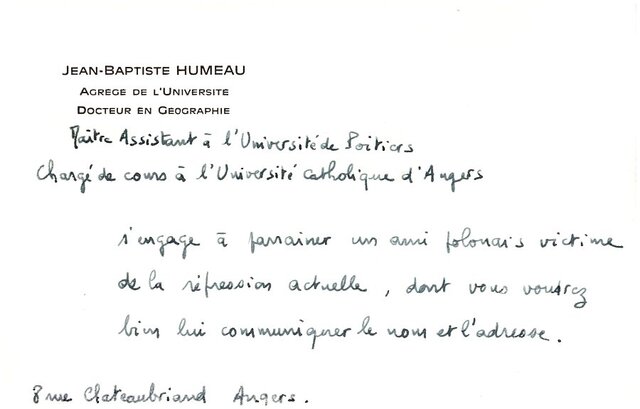 JEAN-BAPTISTE HUMEAU
AGREGE DE L'UNIVERSITE
DOCTEUR EN GEOGRAPHIE
Maître Assistant à l'Université de Poitiers
Chargé de cours à l'Université Catholique d'Angers
s'engage à parrainer un ami polonais victime
de la répression actuelle, dont vous voudrez
bien lui communiquer le nom et l'adresse.
8 rue Chateaubriand Angers.